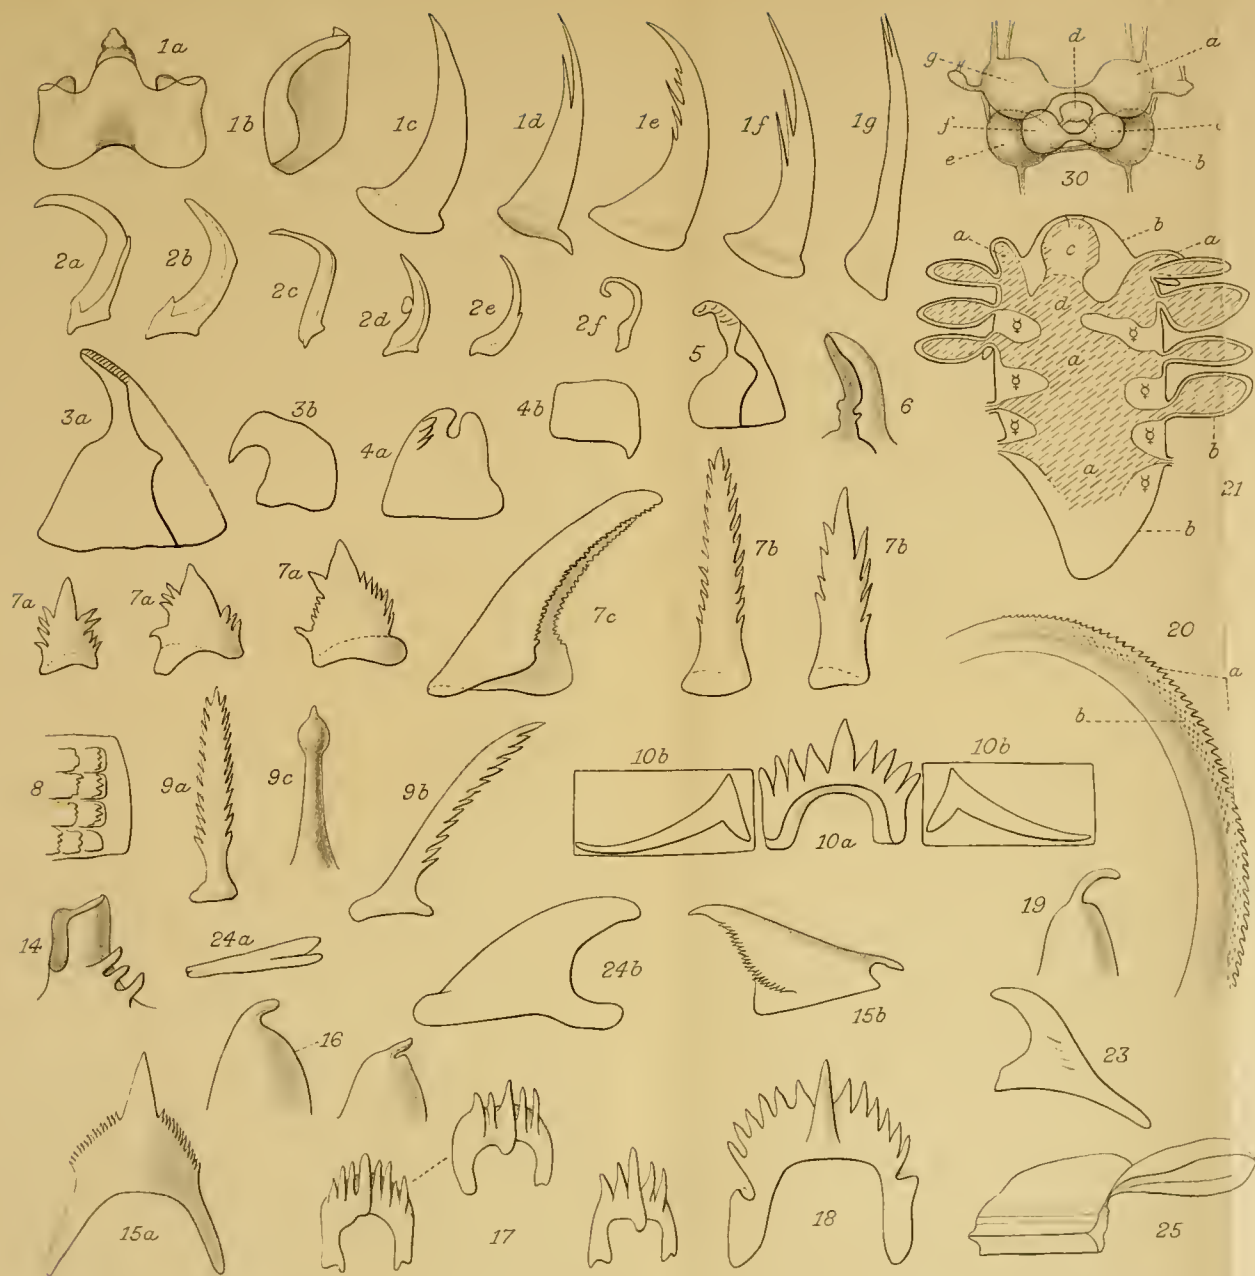 1a
1b
1c
1d
1e
1f
1g
d
g
a
f
e
b
30
2a
2b
2c
2d
2e
2f
5
6
a
b
c
a
d
☿
☿
a
☿
☿
☿
☿
b
a
☿
b
21
3a
3b
4a
4b
7a
7a
7a
7c
7b
7b
20
a
b
8
9a
9c
9b
10b
10a
10b
14
24a
24b
15b
19
16
23
15a
17
18
25